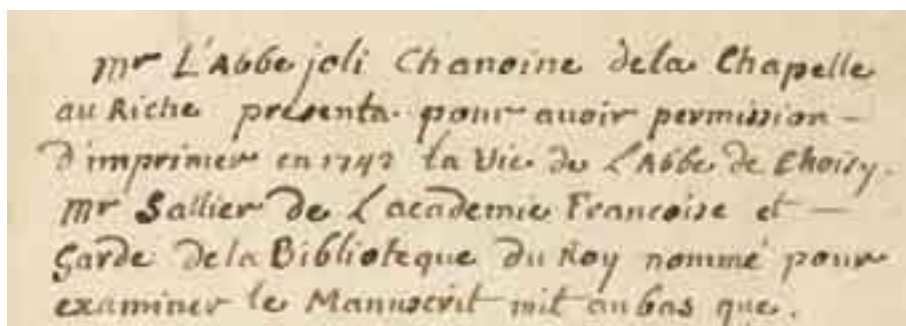 mr L'Abbe joli Chanoine dela Chapelle
au Riche presenta pour avoir permission —
d'imprimer en 1742 la Vie de L'Abbe de Choisy.
mr Sallier de L'academie Francoise et —
Garde dela Biblioteque du Roy nommé pour
examiner le Manuscrit mit au bas que.